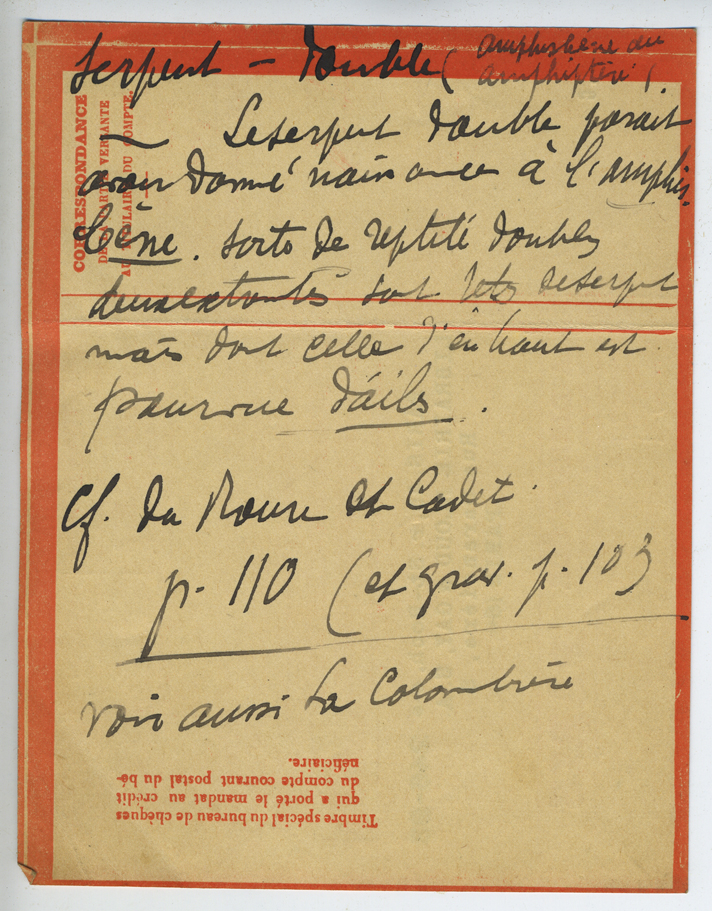 Serpent - Double (Amphisbène ou
amphiptère).
Le serpent double parait
avoir donné naissance à l'amphis-
bène. sorte de reptile double
deux extrémités sont têtes de serpent
mais dont celle d'en haut est
pourvue d'ailes.
Cf. du Roure et Cadet.
p. 110 (et grav. p. 103)
voir aussi La Colombière
CORRESPONDANCE
DE LA PARTIE VERSANTE
AU TITULAIRE DU COMPTE.
Timbre spécial du bureau de chèques
qui a porté le mandat au crédit
du compte courant postal du bé-
néficiaire.